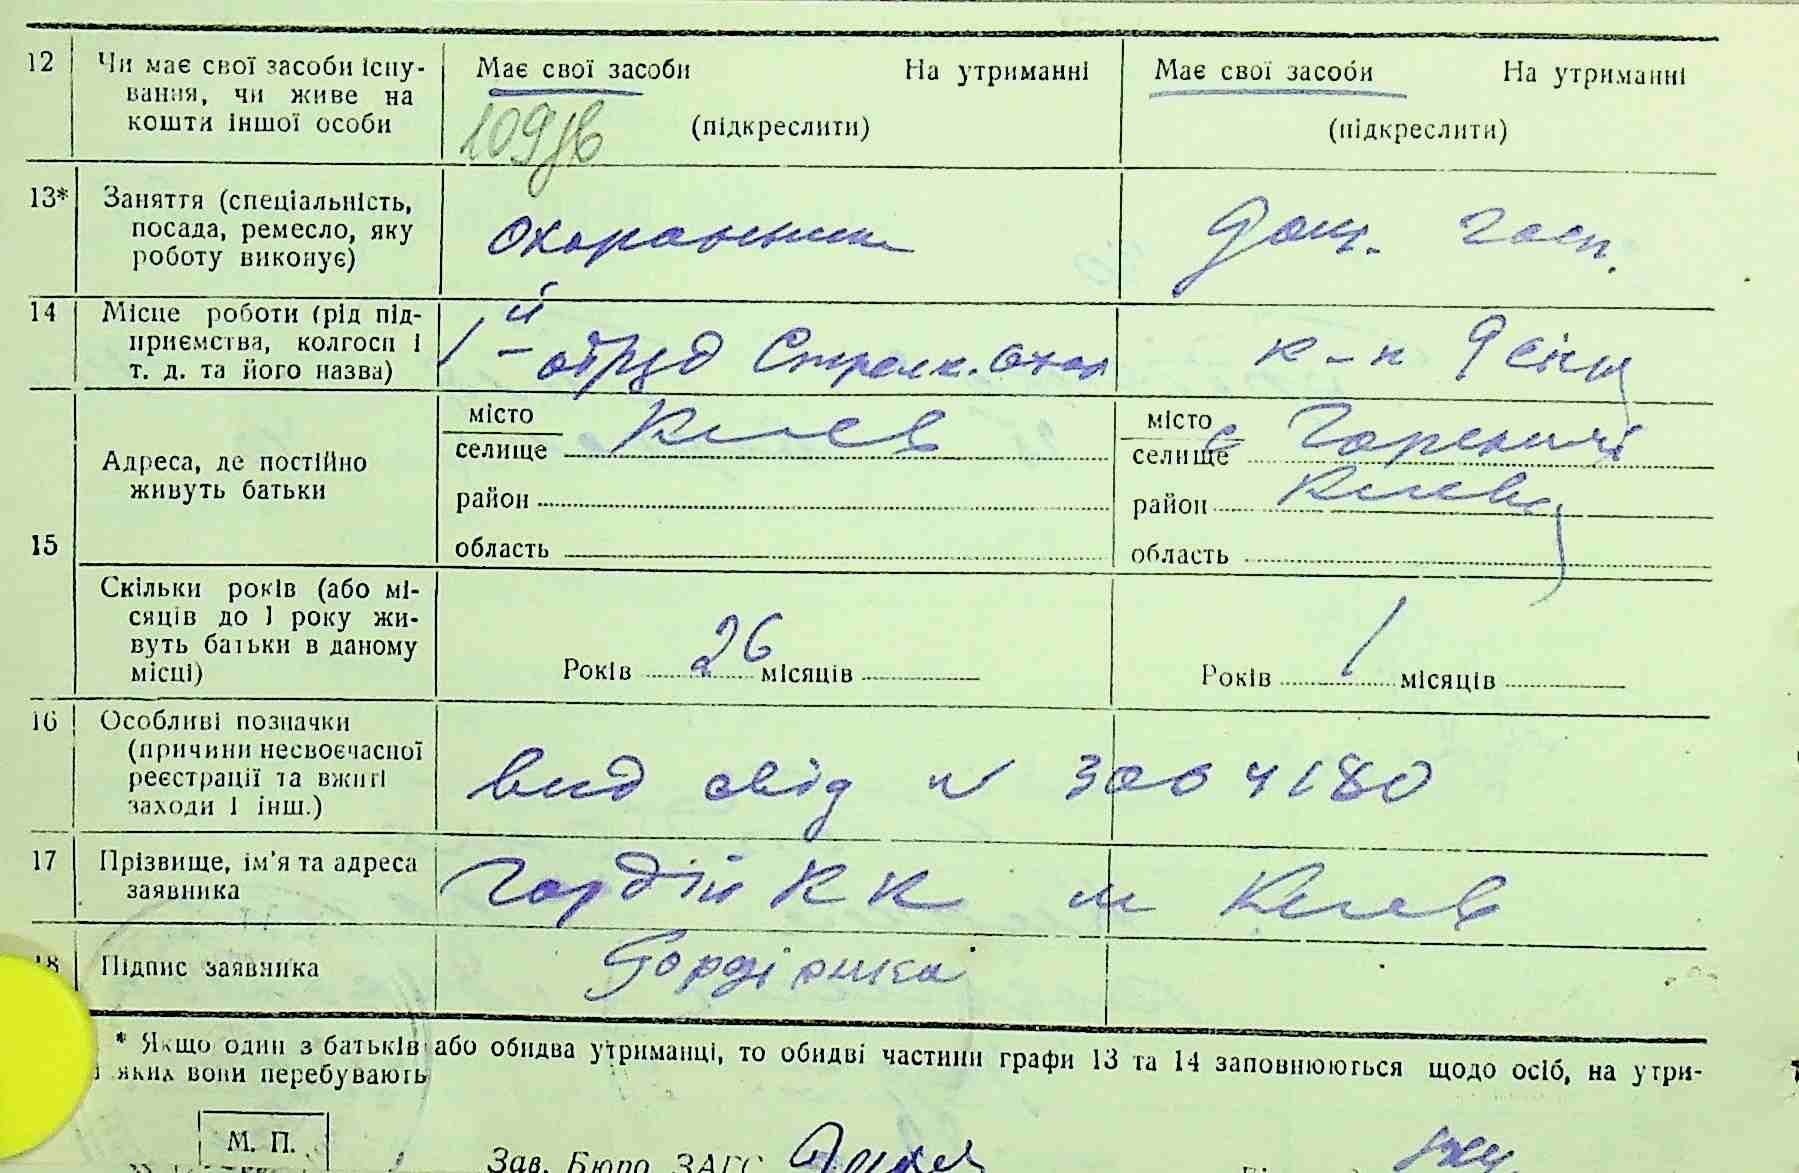 12 Чи має свої засоби існу- Має свої засоби На утриманні Має свої засоби На утриманні
вання, чи живе на
кошти іншої особи (підкреслити) (підкреслити)
13* Заняття (спеціальність,
посада, ремесло, яку охоранник
роботу виконує)
14 Місце роботи (рід під-
приємства, колгосп і 1й - отряд Стрелк. Охор
т. д. та його назва)
місто Киев місто
селище селище с Гореничі
Адреса, де постійно
живуть батьки район район Киевс
15 область область
Скільки років (або мі-
сяців до 1 року жи-
вуть батьки в даному
місці) Років 26 місяців Років 1 місяців
16 Особливі позначки
(причини несвоєчасної
реєстрації та вжиті вид свід N 3004180
заходи і інш.)
17 Прізвище, ім'я та адреса Гордій К К м Киев
заявника
18 Підпис заявника
* Якщо один з батьків або обидва утриманці, то обидві частини графи 13 та 14 заповнюються щодо осіб, на утри-
яких вони перебувають
М. П.
Зав. Бюро ЗАГС